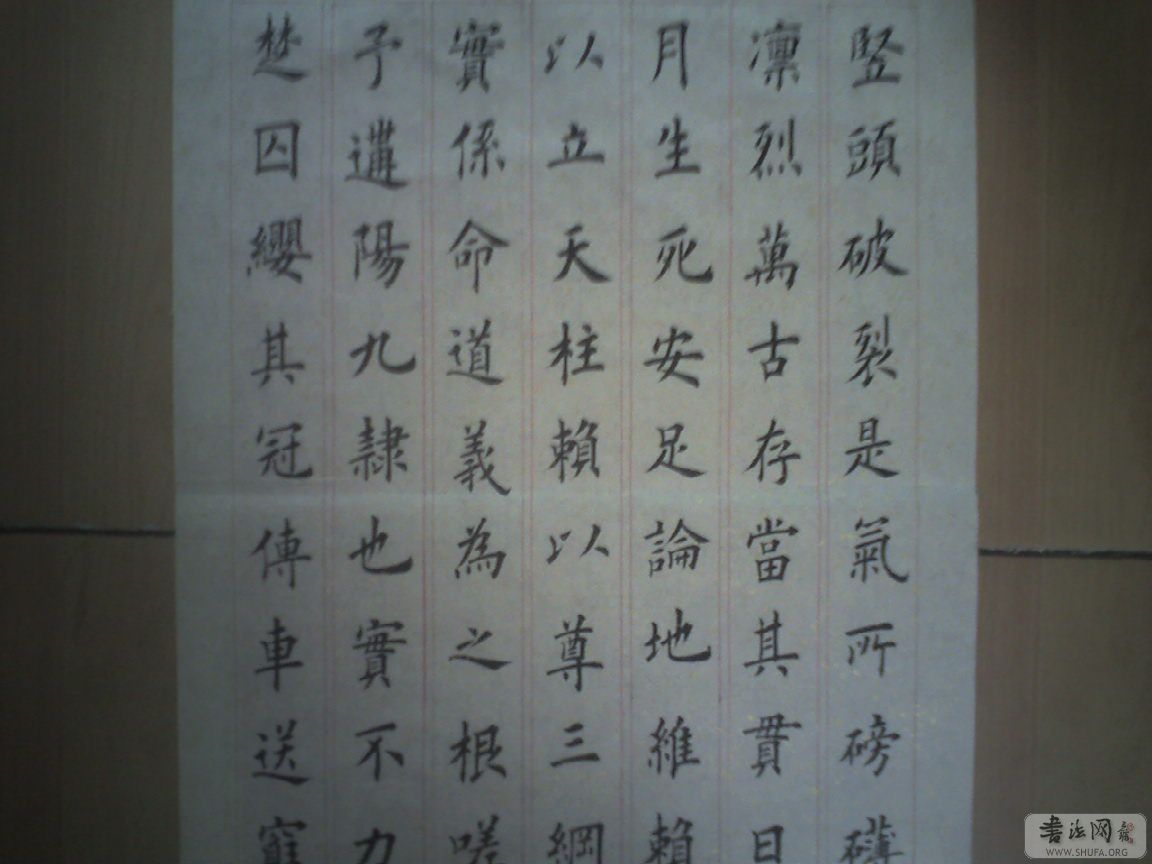 豎頭破裂是氣所磅礴
凜烈萬古存當其貫日
月生死安足論地維賴
以立天柱賴以尊三綱
實係命道義為之根嗟
予遘陽九隸也實不力
楚囚纓其冠傳車送窮
書法网
WWW.SHUFA.ORG